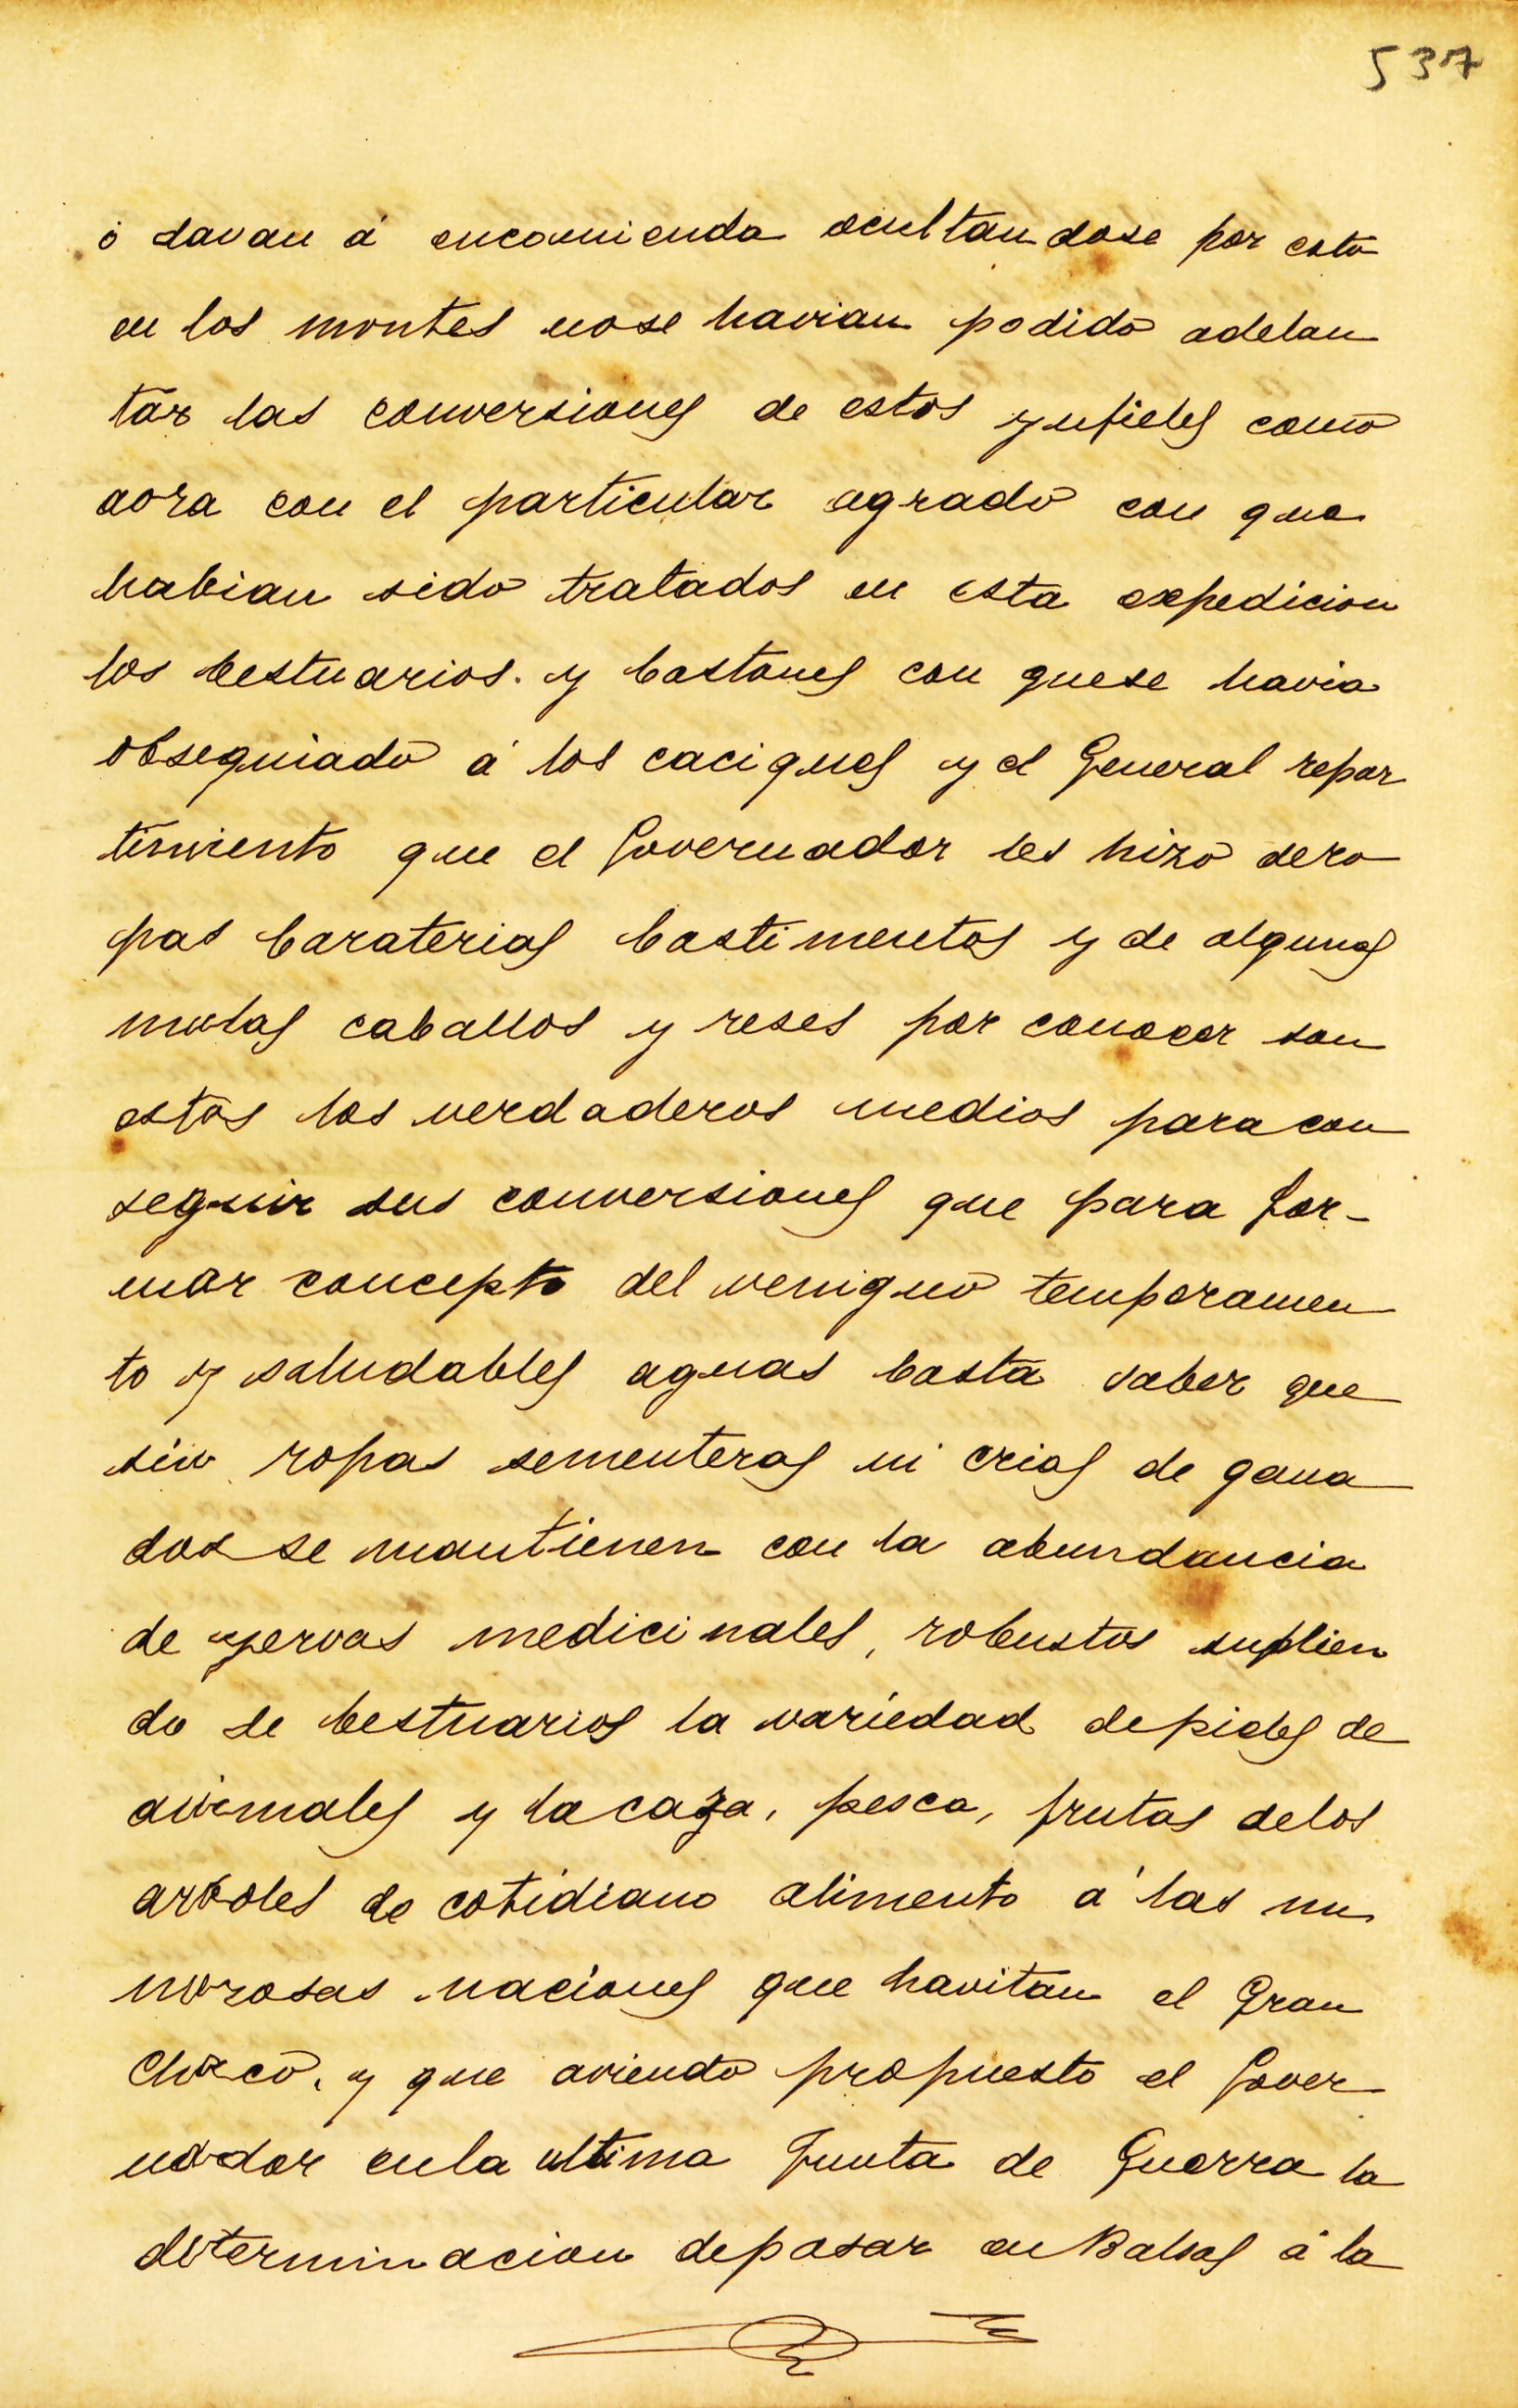 537
ó davan á encomienda ocultandose por esto
en los montes nose havian podido adelan
tar las conversiones de estos ynfieles como
aora con el particular agrado con que
habian sido tratados en esta expedicion
los bestuarios. y bastones con quese havia
obsequiado á los caciques y el General repar
timiento que el Governador les hizo dero
pas baraterias bastimentos y de algunas
mulas caballos y reses por conocer son
estos los verdaderos medios para con
seguir sus conversiones que para for-
mar concepto del venigno temperamen
to y saludables aguas basta saber que
sin ropas sementeras ni crias de gana
dos se mantienen con la abundancia
de yervas medicinales, robustos suplien
do de bestuarios la variedad depieles de
animales y la caza, pesca, frutas delos
arboles de cotidiano alimento á las nu
merosas naciones que havitan el Gran
Chaco. y que aviendo propuesto el Gover
nador enla ultima Junta de Guerra la
determinacion depasar en Balsas á la